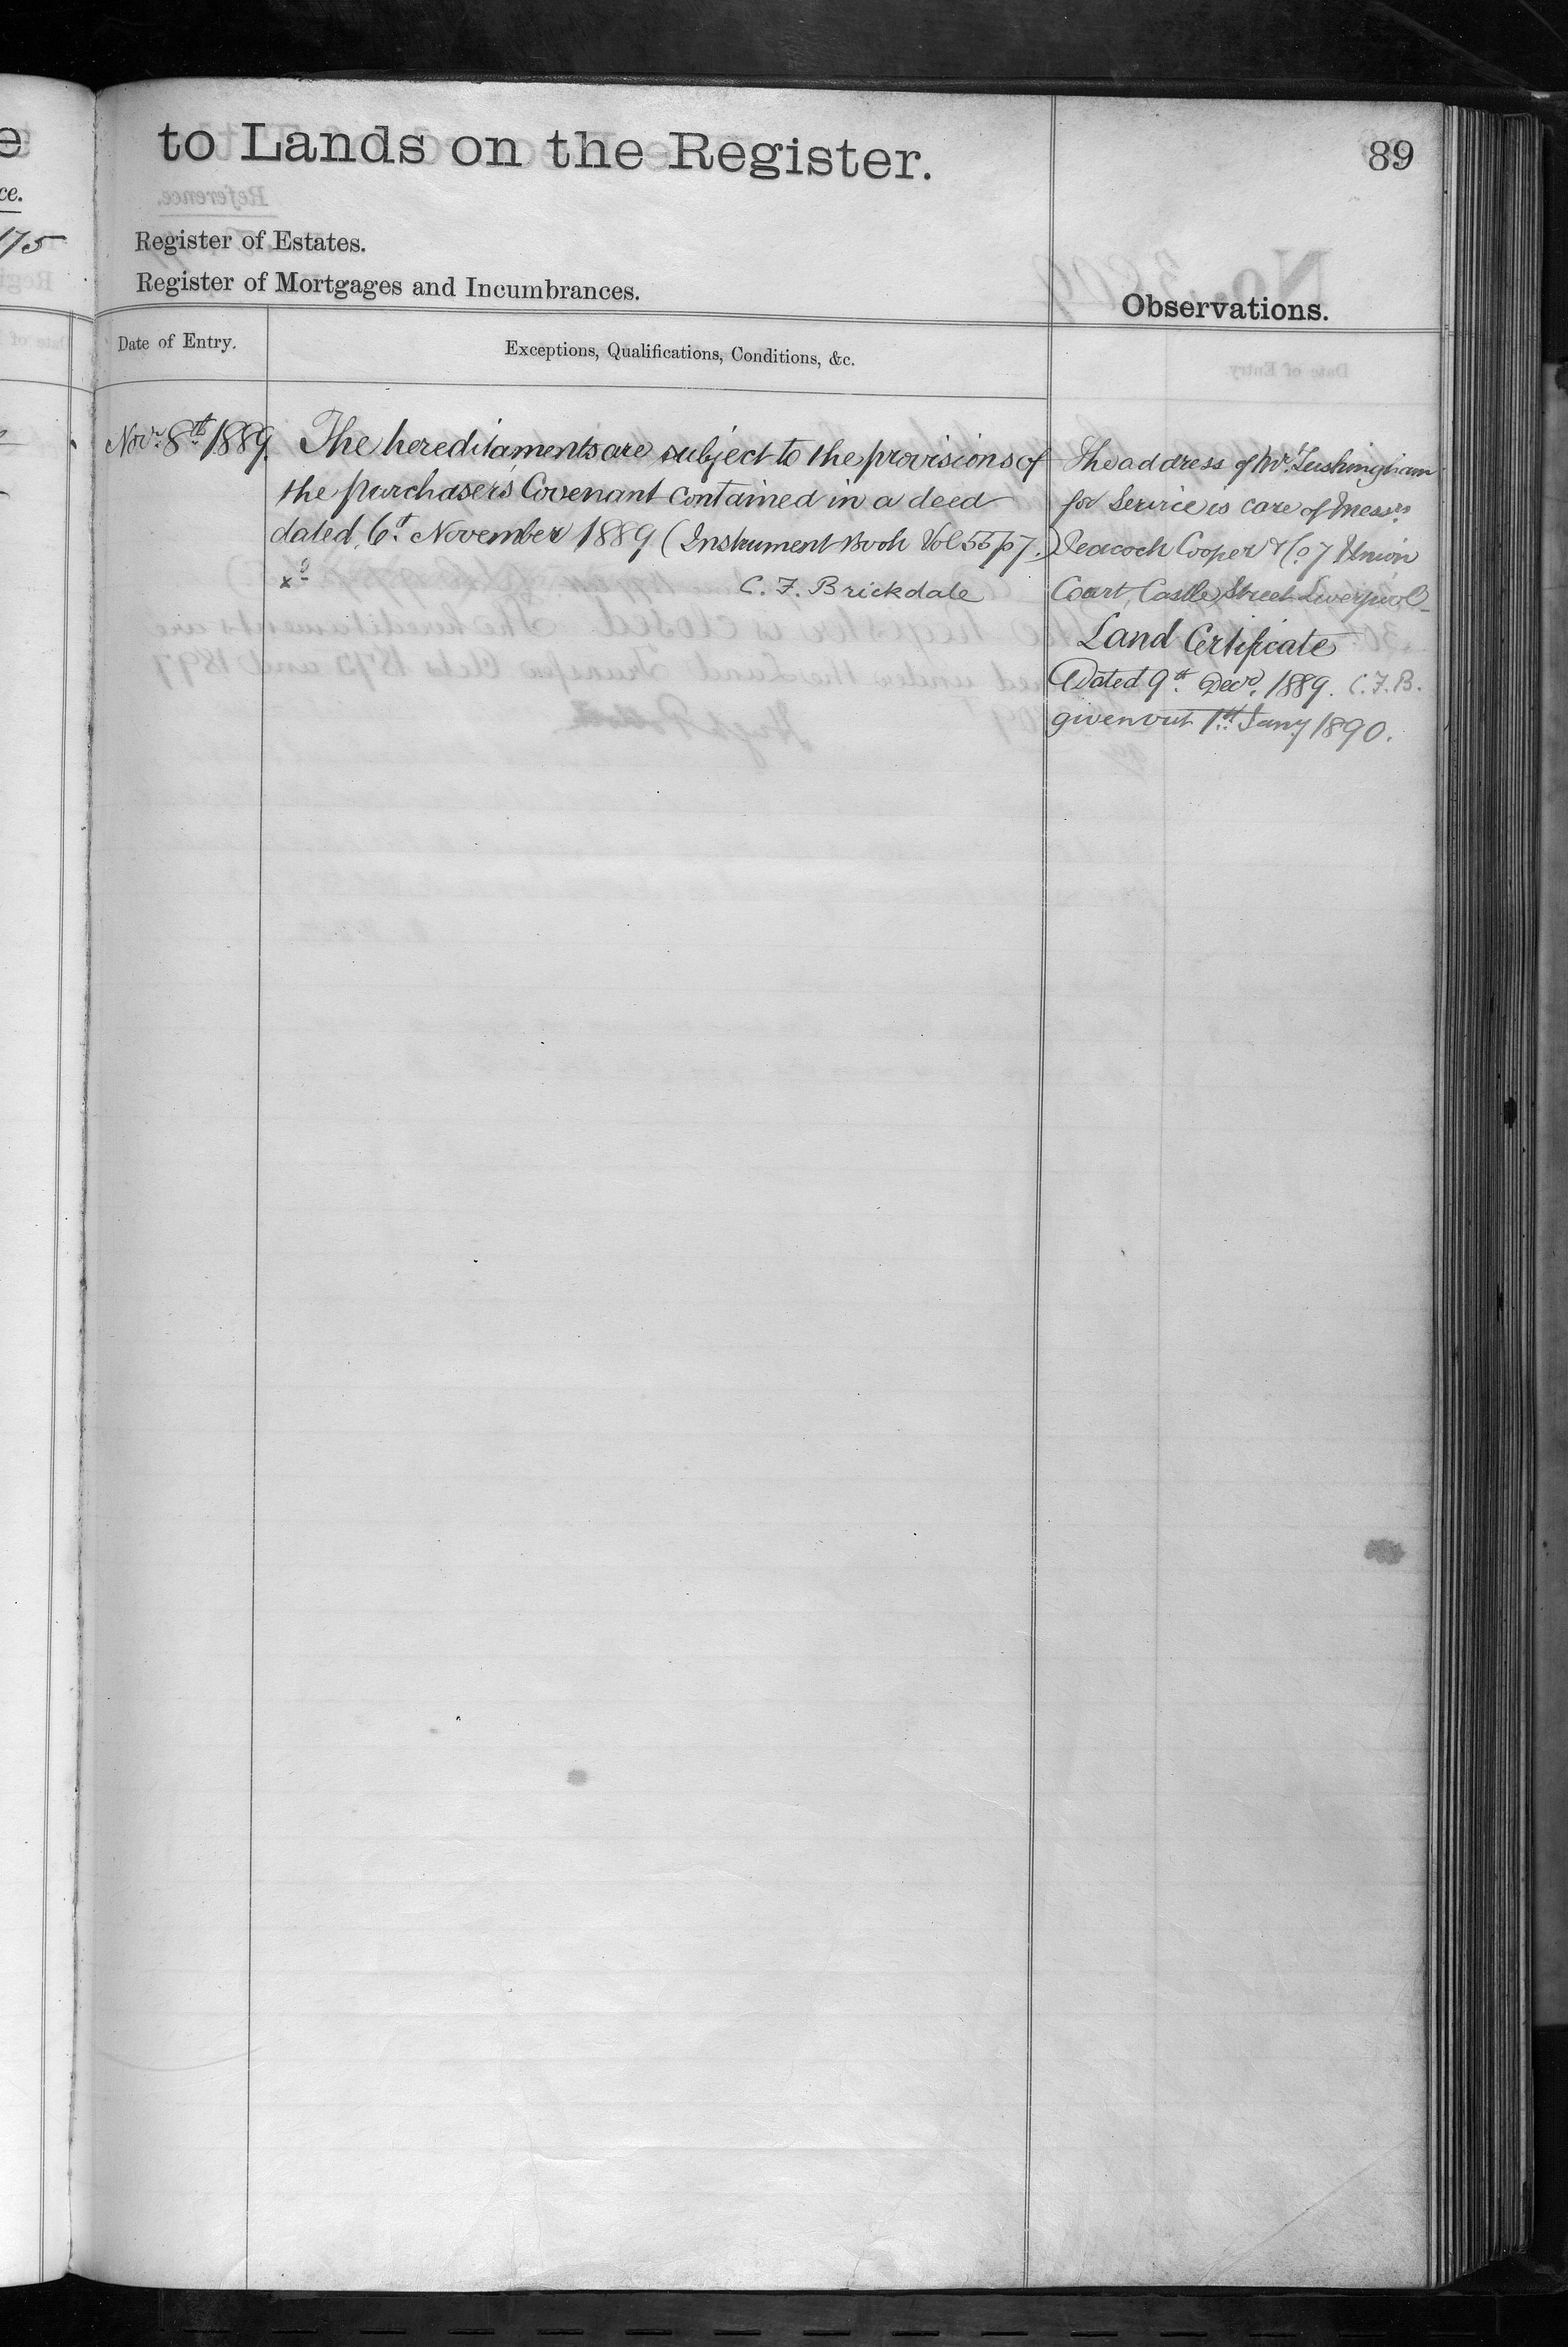 to Lands on the Register.
89
175
Register of Estates.
Register of Mortgages and Incumbrances.
Observations.
Date of Entry.
Exceptions, Qualifications, Conditions, &c.
Novr. 8th 1889.
The hereditaments are subject to the provisions of
the purchasers Covenant contained in a deed
dated 6th November 1889 (Instrument Book Vol 55 p 7.)
xd
C. F. Brickdale
The address of Mr. Lushingham
for Service is care of Messrs
Peacock Cooper & Co. 7 Union
Court, Castle Street Liverpool
Land Certificate
dated 9th Decr. 1889. C.F.B.
given out 1st Jany 1890.